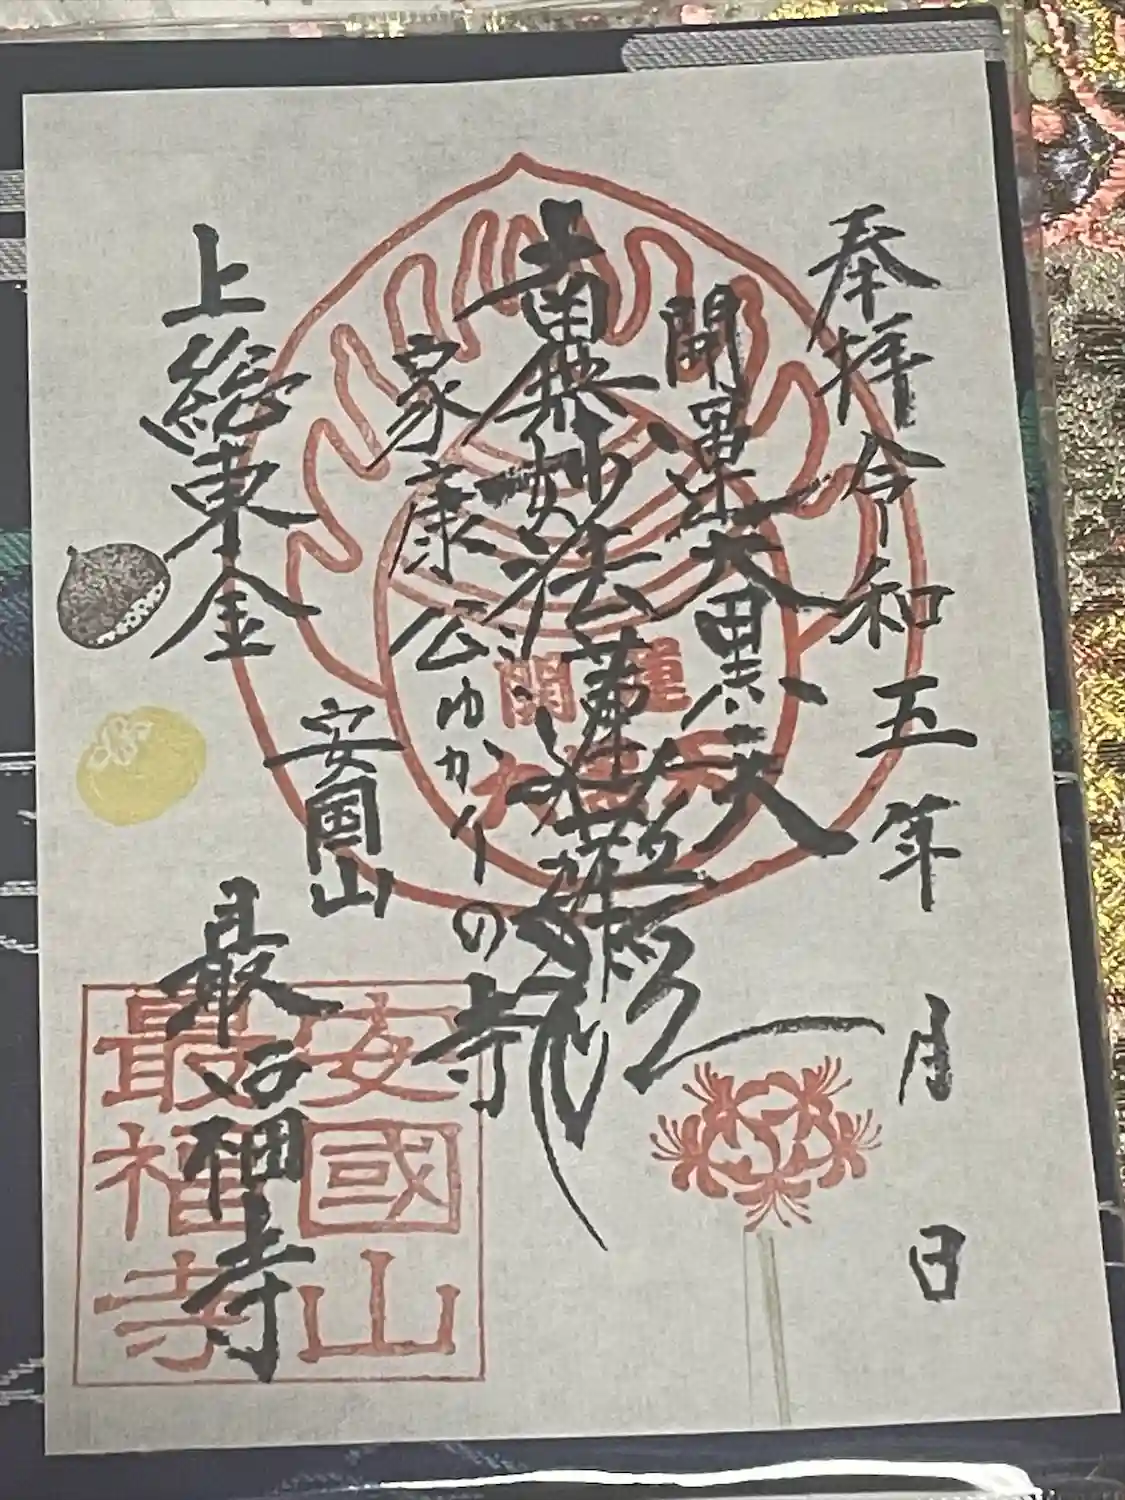 奉拝 令和五年 月 日
開運大黒天
南無妙法蓮華経
家康公ゆかりの寺
安国山
上総東金 最福寺
開運
安國山
最福寺